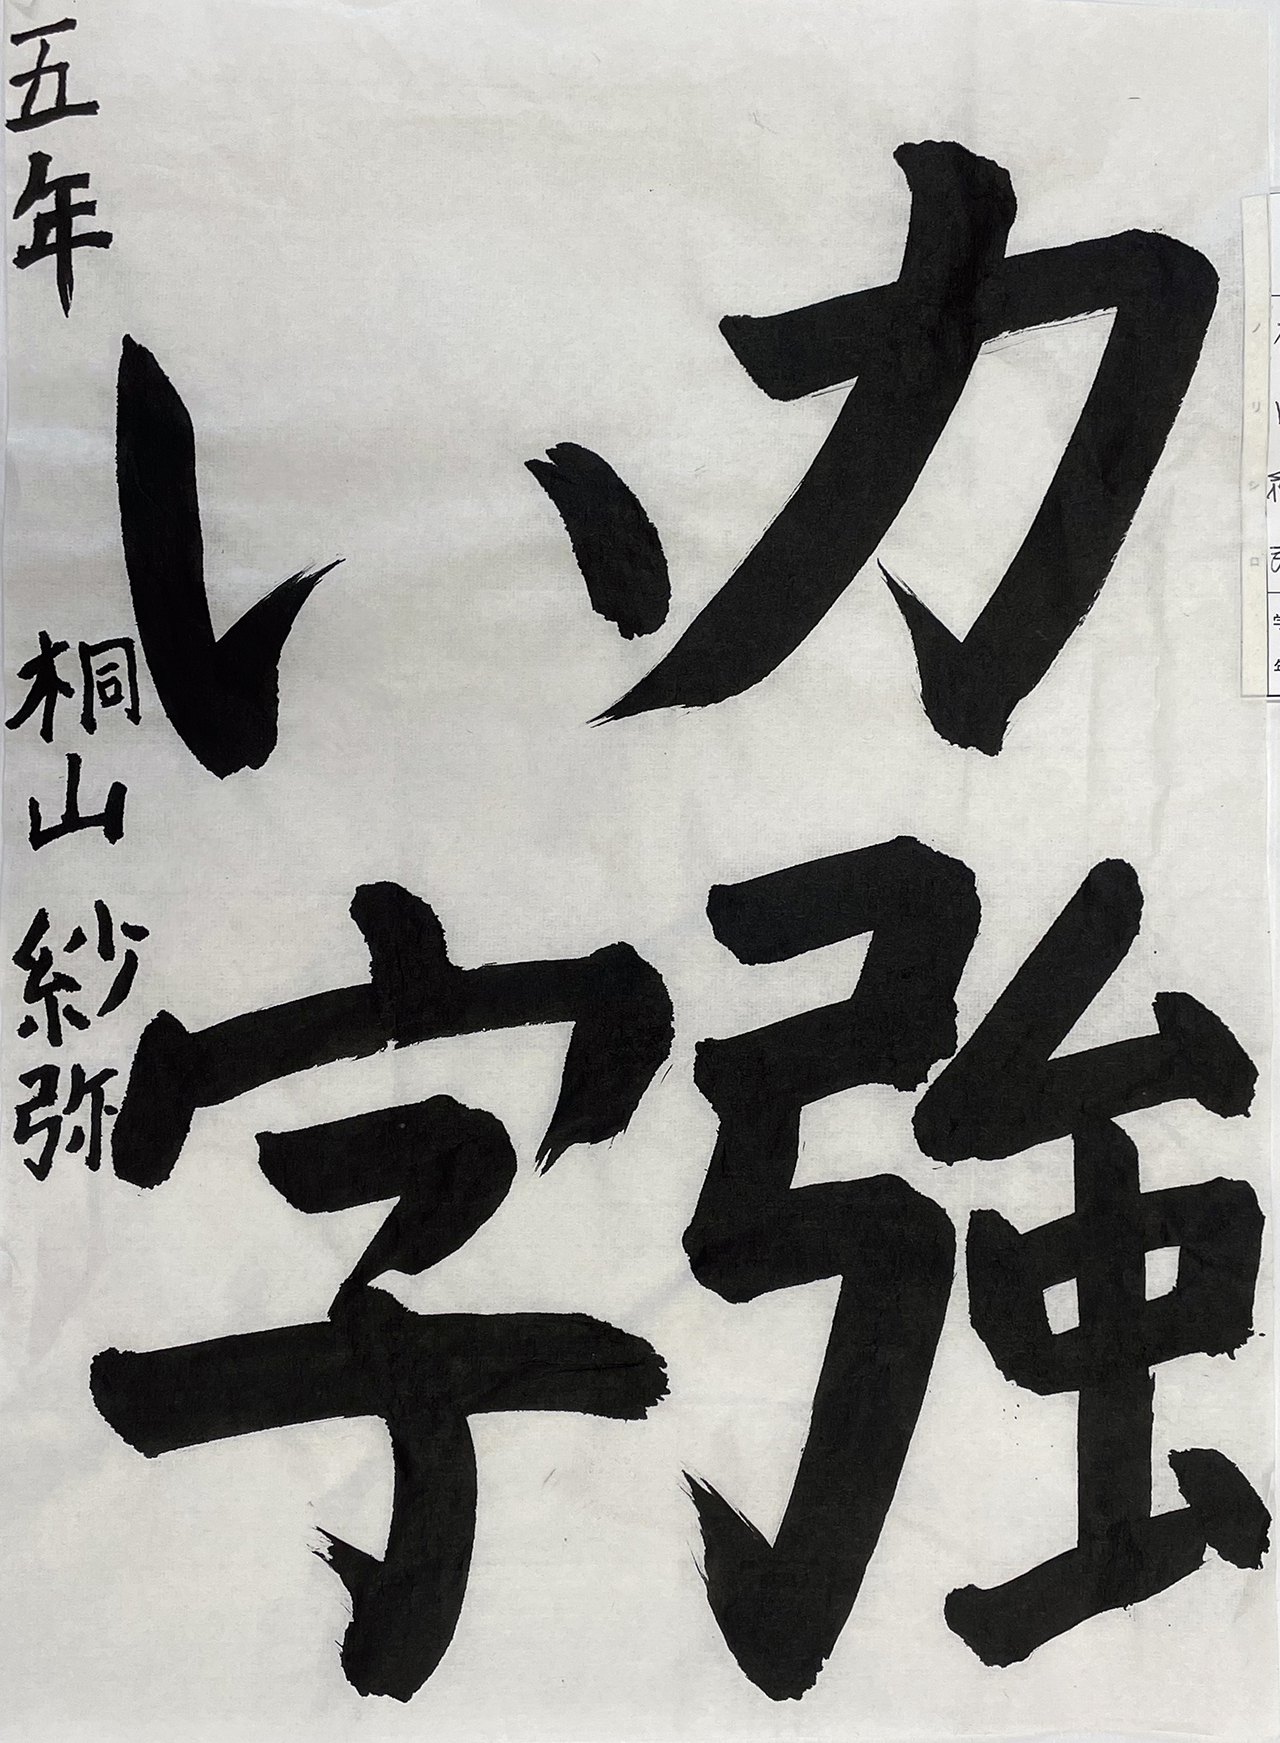 力強
い字
五年 桐山 紗弥